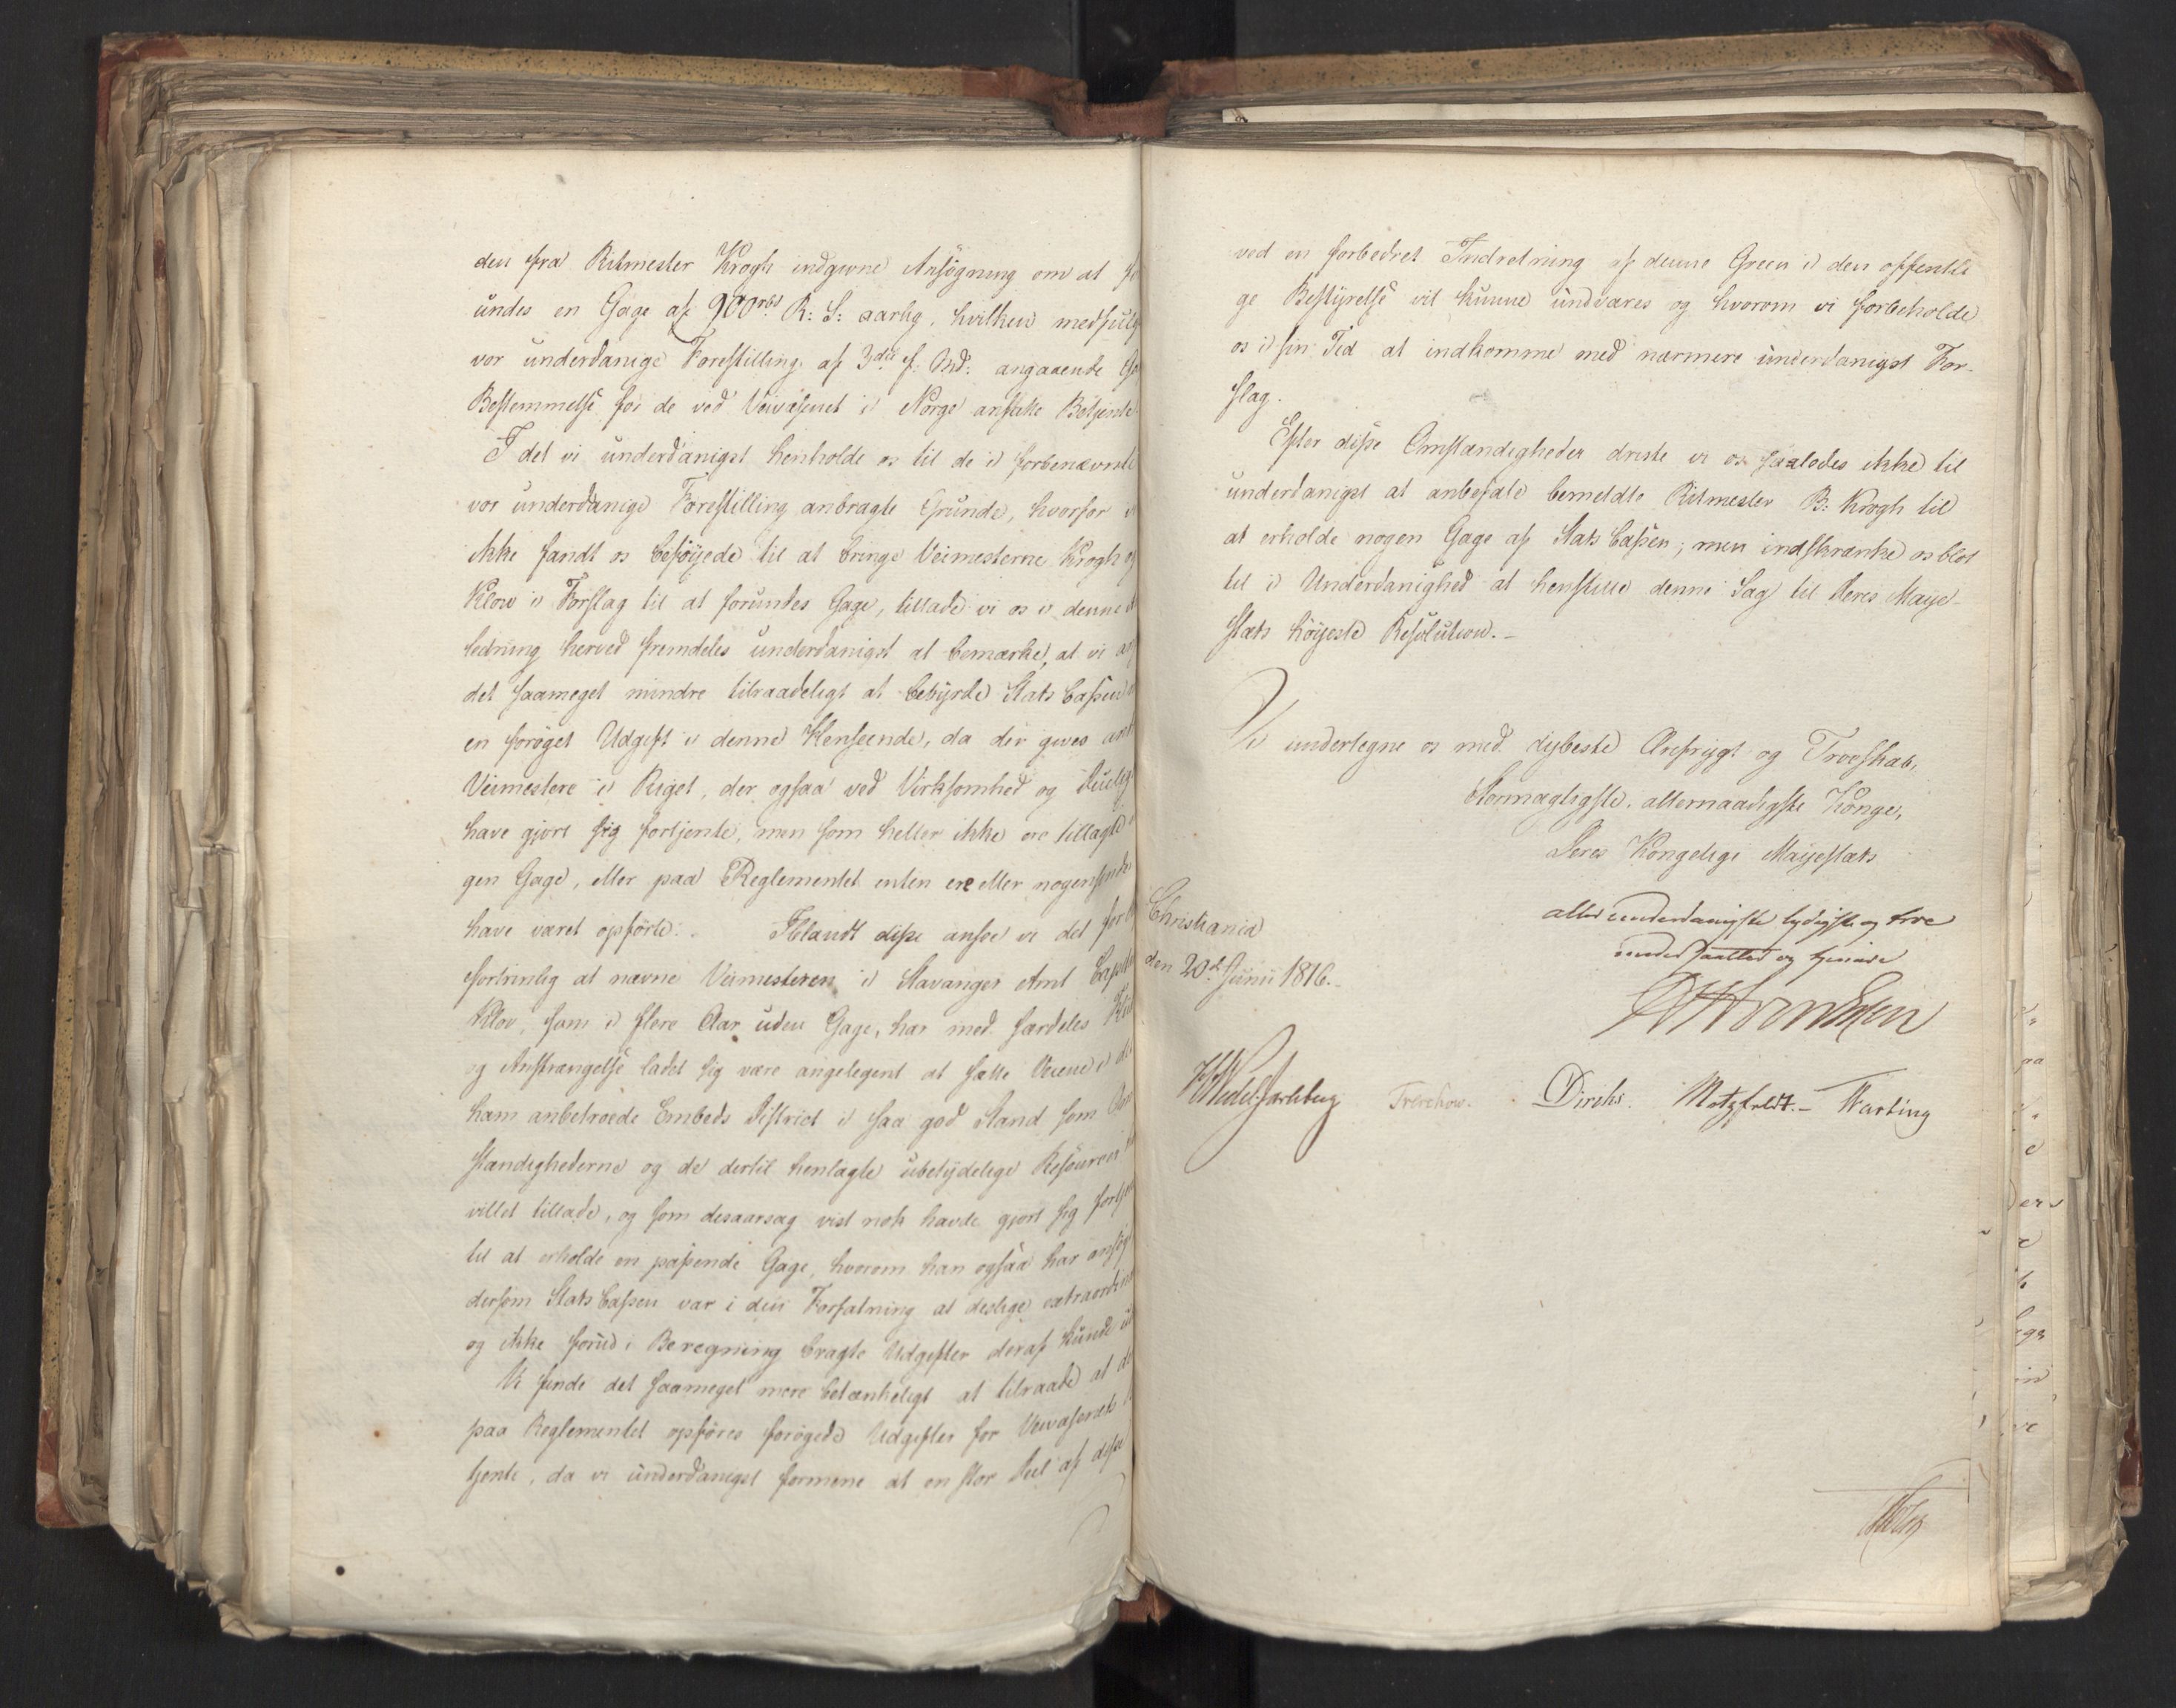 den fra Ritmester Krogh indgivne Ansøgning om at fo
undes en Gage af 900 rbd R: S: aarlig, hvilken medfulg
vor underdanige Forestilling af 3die f: Md: angaaende Ga
Bestemmelse for de ved Veivæsenet i Norge ansatte Betjente.
I det vi underdanigst henholde os til de i forbenævnte
vor underdanige Forestilling anbragte Grunde, hvorfor vi
ikke fandt os beføyede til at bringe Veimesterne Krogh og
Klow i Forslag til at forundes Gage, tillade vi os i denne An
ledning herved fremdeles underdanigst at bemærke, at vi an
det saameget mindre tilraadeligt at bebyrde Stats Cassen
en forøget Udgift i denne Henseende, da der gives and
Veimestere i Riget, der ogsaa ved Virksomhed og Duelig
have gjort sig fortjente, men som heller ikke ere tillagte
gen Gage, eller paa Reglementet enten ere eller nogensinde
have været opførte. Iblandt disse ansee vi det for
fortrinlig at nævne Veimesteren i Stavanger Amt Capitai
Klow, som i flere Aar uden Gage, har med særdeles Flid
og Anstrængelse ladet sig være angelegent at sætte Veiene i det
ham anbetroede Embeds District i saa god Stand som Om
stændighederne og de dertil henlagte ubetydelige Resourcer
villet tillade, og som desaarsag vist nok havde gjort sig fortje
til at erholde en passende Gage, hvorom han ogsaa har ansøgt
dersom Stats Cassen var i den Forfatning at deslige extraordin
og ikke forud i Beregning bragte Udgifter deraf kunde ud
Vi finde det saameget mere betænkeligt at tilraade at de
paa Reglementet opføres forøgede Udgifter for Veivæsenets
tjente, da vi underdanigst formene at en stor Deel af disse
ved en forbedret Indretning af denne Green i den offentli
ge Bestyrelse vil kunne undværes og hvorom vi forbeholde
os i sin Tid at indkomme med nærmere underdanigst For-
slag.
Efter disse Omstændigheder driste vi os saaledes ikke til
underdanigst at anbefale bemeldte Ritmester B: Krogh til
at erholde nogen Gage af Stats Cassen; men indskrænke os blot
til i Underdanighed at henstille denne Sag til Deres Maye-
stæts høyeste Resolution.-
Vi undertegne os med dybeste Ærefrygt og Troeskab,
Stormægtigste, allernaadigste Konge,
Deres Kongelige Mayestæts
allerunderdanigste lydigste og troe
undersaatter og tjenere
Christiania
den 20de Junii 1816.-
HWedel Jarlsberg Treschow. Diriks. Motzfeldt.- Harting